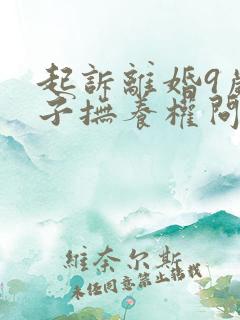 起訴離婚9歲
子撫養權問
維奈尔斯
未经同意禁止转载